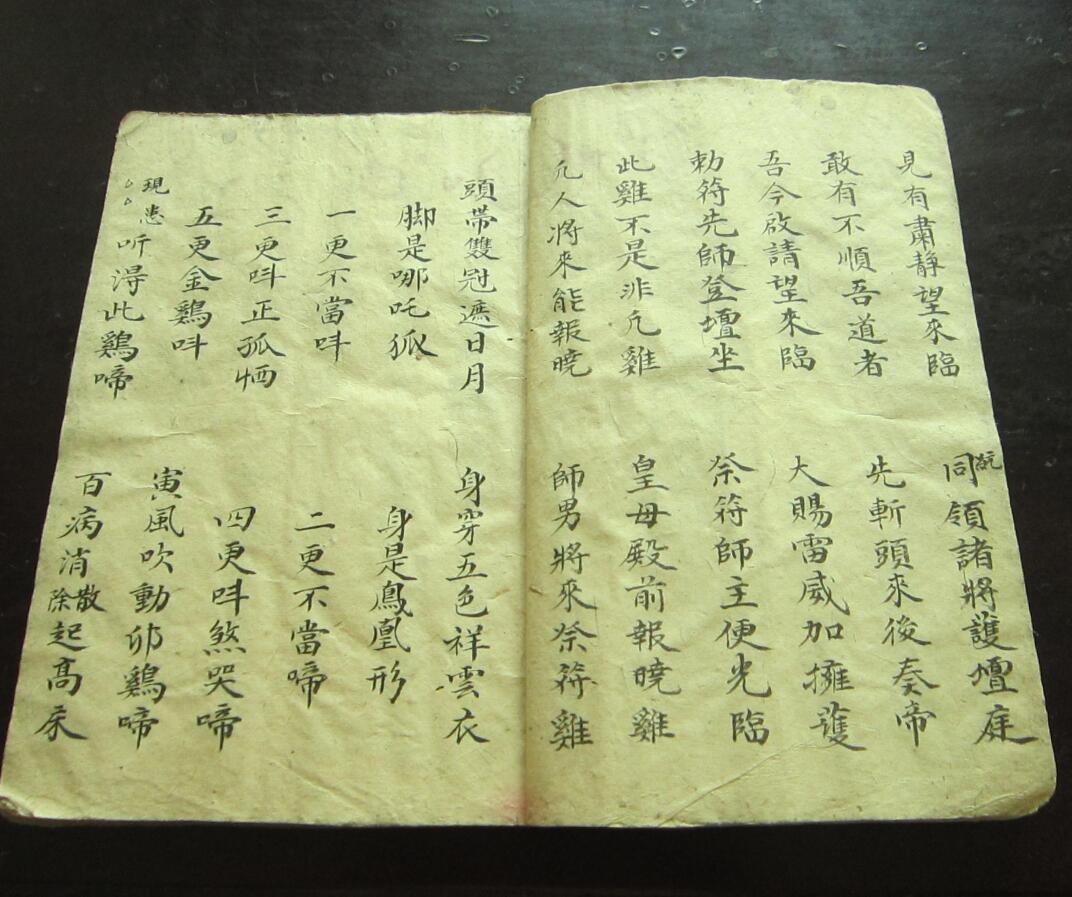 見有肅静望來臨
同領諸將護壇庭
敢有不順吾道者
先斬頭來後奏啼
吾今啟請望來臨
大賜雷威加擁護
勅符先師登壇坐
祭符師主便光臨
此雞不是非凢雞
皇母殿前報曉雞
凢人將來能報曉
師男將來祭符雞
頭帶雙冠遮日月
身穿五色祥雲衣
脚是哪吒狐
身是鳳凰形
一更不當呌
二更不當啼
三更呌正孤恓
四更呌煞哭啼
五更金鷄呌
寅風吹動卯鷄啼
現患
听淂此鷄啼
百病消除散起髙床